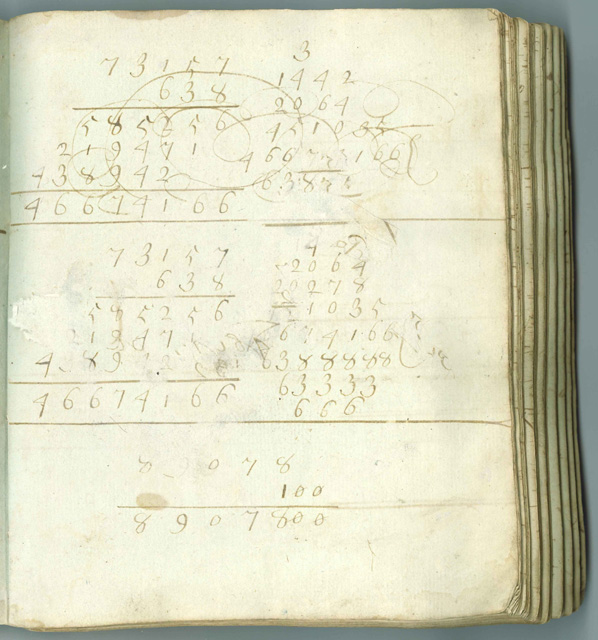 7 3 1 5 7
6 3 8
5 8 5 2 5 6
2 1 9 4 7 1
4 3 8 9 4 2
4 6 6 7 4 1 6 6
3
1 4 4 2
2 0 6 4
4 5 1 0 3 5
4 6 6 1 6 6
6 3 8
7 3 1 5 7
6 3 8
5 8 5 2 5 6
4 7
4 8 9
4 6 6 7 4 1 6 6
2 0 6 4
2 0 2 7 8
1 0 3 5
6 7 4 1 6 6
6 3 8 8 8 8 8
6 3 3 3 3
6 6 6
8 0 7 8
1 0 0
8 9 0 7 8 0 0